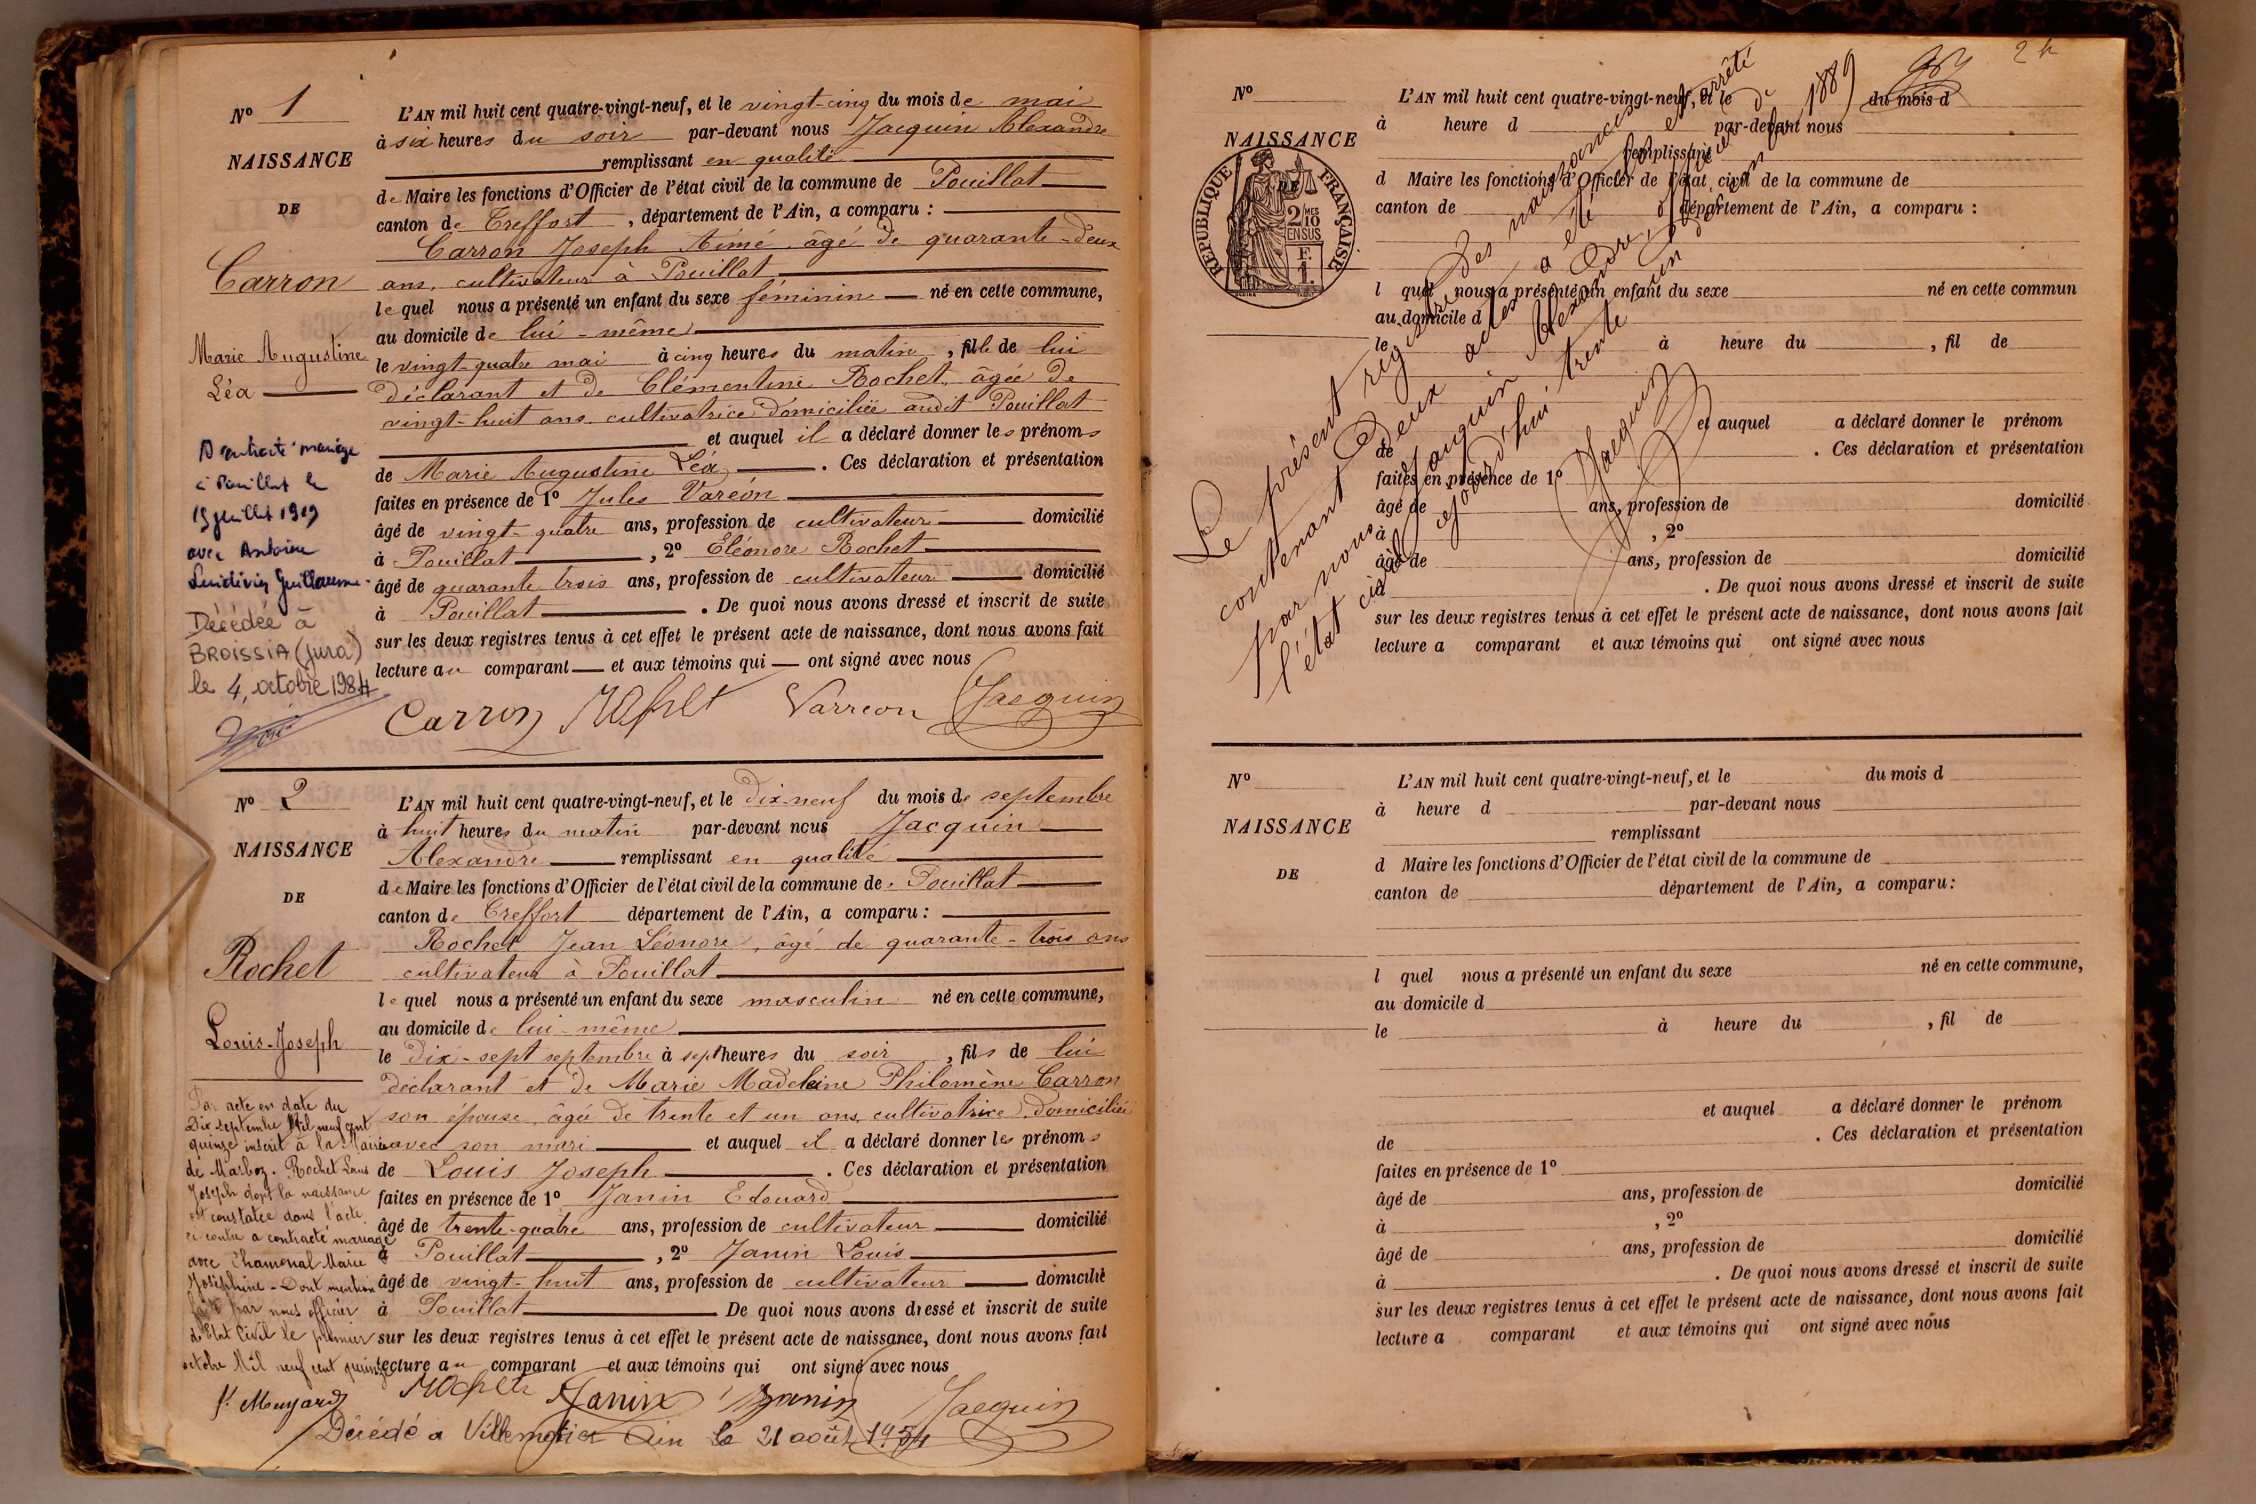 N° 1
NAISSANCE
DE
Carron
Marie Augustine
Léa
A contracté mariage
à Pouillat le
19 juillet 1919
avec Antoine
Guillaume
Décédée à
BROISSIA (Jura)
le 4 octobre 1984
L'AN mil huit cent quatre-vingt-neuf, et le vingt-cinq du mois de mai
à six heures du soir par-devant nous Jacquin Alexandre
remplissant en qualité
de Maire les fonctions d'Officier de l'état civil de la commune de Pouillat
canton de Treffort, département de l'Ain, a comparu :
Carron Joseph Aimé, âgé de quarante-deux
ans, cultivateur à Pouillat
lequel nous a présenté un enfant du sexe féminin né en cette commune,
au domicile de lui-même
le vingt-quatre mai à cinq heures du matin, fille de lui
déclarant et de Clémentine Rochet, âgée de
vingt-huit ans, cultivatrice domiciliée audit Pouillat
et auquel il a déclaré donner les prénoms
de Marie Augustine Léa. Ces déclaration et présentation
faites en présence de 1° Jules Varéon
âgé de vingt-quatre ans, profession de cultivateur domicilié
à Pouillat, 2° Eléonore Rochet
âgé de quarante trois ans, profession de cultivateur domicilié
à Pouillat. De quoi nous avons dressé et inscrit de suite
sur les deux registres tenus à cet effet le présent acte de naissance, dont nous avons fait
lecture au comparant et aux témoins qui ont signé avec nous
Carron Rochet Varreon Jacquin
N° 2
NAISSANCE
DE
Rochet
Louis-Joseph
Par acte en date du
Dix septembre Mil neuf cent
quinze inscrit à la Mairie
de Marboz. Rochet Louis
Joseph dont la naissance
est constatée dans l'acte
ci-contre a contracté mariage
avec Chamonal Marie
Joséphine - Dont mention
faite par nous officier
de l'Etat Civil le premier
octobre Mil neuf cent quinze
L'AN mil huit cent quatre-vingt-neuf, et le dix-neuf du mois de septembre
à huit heures du matin par-devant nous Jacquin
Alexandre remplissant en qualité
de Maire les fonctions d'Officier de l'état civil de la commune de Pouillat
canton de Treffort département de l'Ain, a comparu :
Rochet Jean Léonore, âgé de quarante-trois ans
cultivateur à Pouillat
lequel nous a présenté un enfant du sexe masculin né en cette commune,
au domicile de lui-même
le dix-sept septembre à sept heures du soir, fils de lui
déclarant et de Marie Madeleine Philomène Carron
son épouse, âgée de trente et un ans, cultivatrice, domiciliée
avec son mari et auquel il a déclaré donner les prénoms
de Louis Joseph. Ces déclaration et présentation
faites en présence de 1° Janin Edouard
âgé de trente-quatre ans, profession de cultivateur domicilié
à Pouillat, 2° Janin Louis
âgé de vingt-huit ans, profession de cultivateur domicilié
à Pouillat De quoi nous avons dressé et inscrit de suite
sur les deux registres tenus à cet effet le présent acte de naissance, dont nous avons fait
lecture au comparant et aux témoins qui ont signé avec nous
Rochet Janin Janin Jacquin
Décédé à Villemotier Ain le 21 août 1954
N°
NAISSANCE
DE
RÉPUBLIQUE FRANÇAISE
2/10 MES
EN SUS
F.
1.
L'AN mil huit cent quatre-vingt-neuf, et le du mois d
à heure d par-devant nous
remplissant
d Maire les fonctions d'Officier de l'état civil de la commune de
canton de département de l'Ain, a comparu :
l quel nous a présenté un enfant du sexe né en cette commun
au domicile d
le à heure du, fil de
et auquel a déclaré donner le prénom
de. Ces déclaration et présentation
faites en présence de 1°
âgé de ans, profession de domicilié
à, 2°
âgé de ans, profession de domicilié
à. De quoi nous avons dressé et inscrit de suite
sur les deux registres tenus à cet effet le présent acte de naissance, dont nous avons fait
lecture a comparant et aux témoins qui ont signé avec nous
Le présent registre des naissances
contenant deux actes a été clos et arrêté
par nous Jacquin Alexandre, officier de
l'état civil cejourd'hui trente un décembre 1889
Jacquin
N°
NAISSANCE
DE
L'AN mil huit cent quatre-vingt-neuf, et le du mois d
à heure d par-devant nous
remplissant
d Maire les fonctions d'Officier de l'état civil de la commune de
canton de département de l'Ain, a comparu :
l quel nous a présenté un enfant du sexe né en cette commune,
au domicile d
le à heure du, fil de
et auquel a déclaré donner le prénom
de. Ces déclaration et présentation
faites en présence de 1°
âgé de ans, profession de domicilié
à, 2°
âgé de ans, profession de domicilié
à. De quoi nous avons dressé et inscrit de suite
sur les deux registres tenus à cet effet le présent acte de naissance, dont nous avons fait
lecture a comparant et aux témoins qui ont signé avec nous